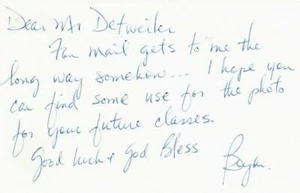 Dear Mr Detweiler
Fan mail gets to me the
long way somehow... I hope you
can find some use for the photo
for your future classes.
Good luck & God Bless
Bryan.